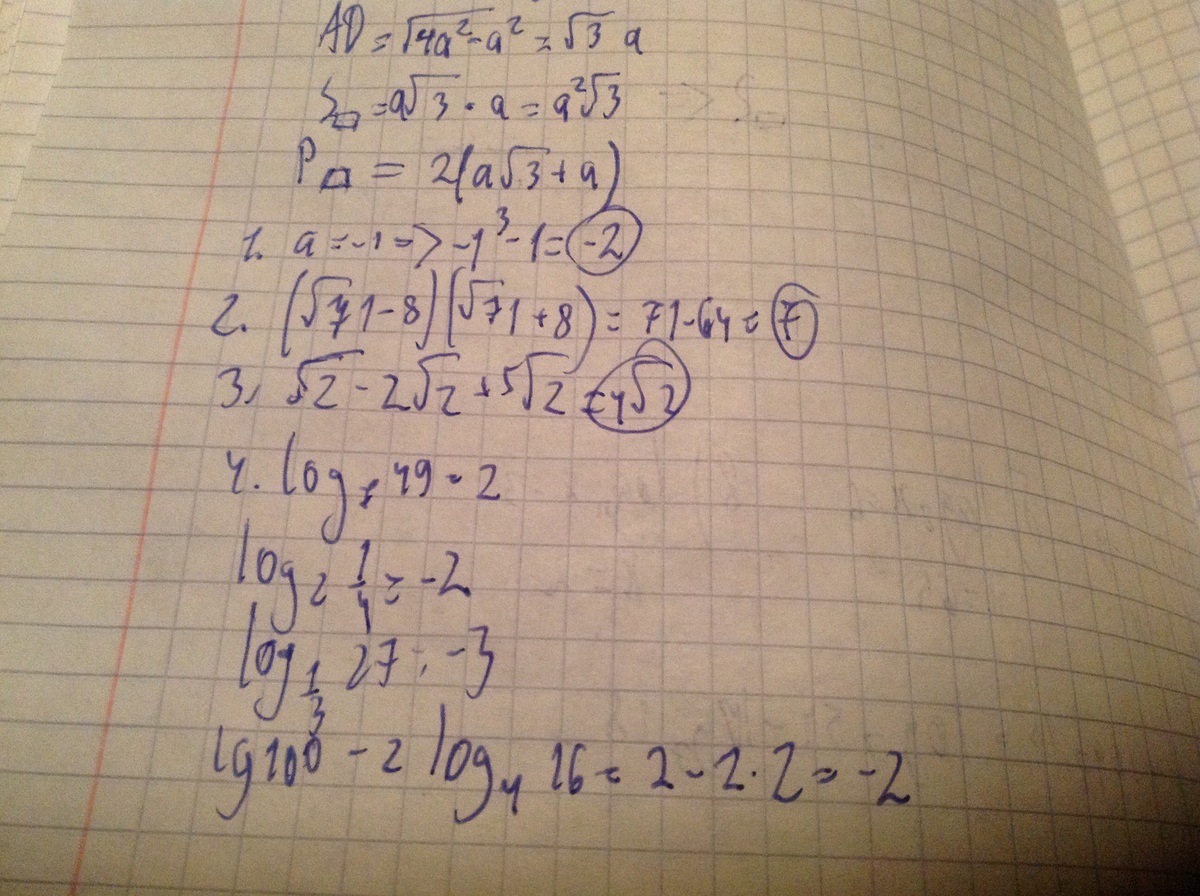 AD = √4a² - a² = √3 a
S▭ = a√3 · a = a²√3
P▭ = 2(a√3 + a)
1. a = -1 => -1³ - 1 = -2
2. (√71 - 8)(√71 + 8) = 71 - 64 = 7
3. √2 - 2√2 + 5√2 = 4√2
4. log₇ 49 = 2
log₂ 1/4 = -2
log_1/3 27 = -3
lg 100 - 2 log₄ 16 = 2 - 2 · 2 = -2